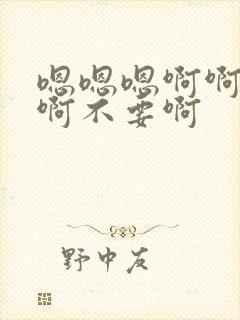 嗯嗯嗯啊啊
啊不要啊
野中友